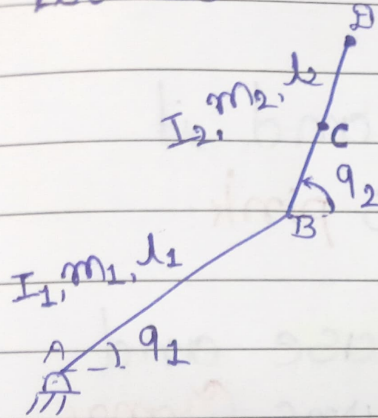 D
I₂, m₂, l₂
C
q₂
B
I₁, m₁, l₁
A
q₁